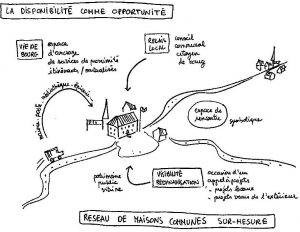 LA DISPONIBILITÉ COMME OPPORTUNITÉ
VIE DE
BOURG
espace
d'ancrage
de services de proximité
itinérants / mutualisés
RELAIS
LOCAL
conseil
communal
citoyen
de bourg
mairie - poste
médiathèque - épicerie
espace de
rencontre
symbolique
patrimoine
public
vitrine
VISIBILITÉ
occasion d'un
appel à projets
- projets locaux
- projets venus de l'extérieur
RESEAU DE MAISONS COMMUNES SUR-MESURE